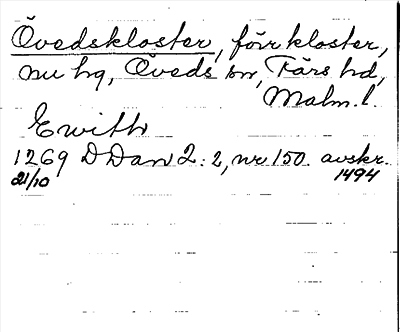 Övedskloster, förr kloster,
nu hg, Öveds sn, Färs hd,
Malm. l.
Ewith
1269 DDan 2:2, nr 150. avskr.
21/10 1494